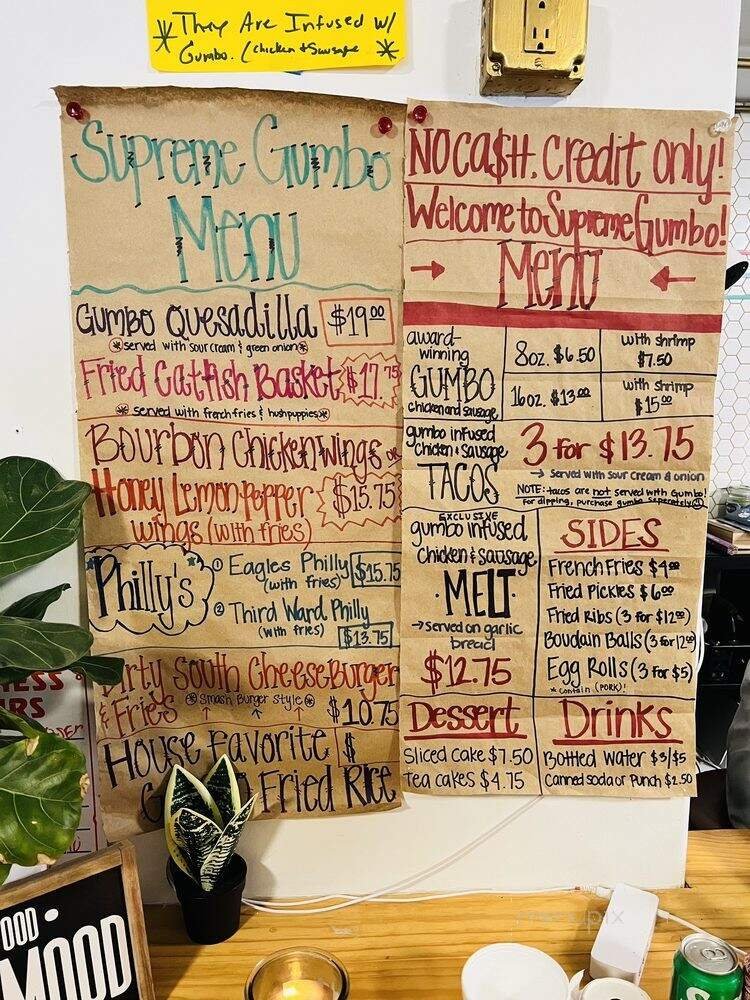 They Are Infused w/
Gumbo. (chicken + Sausage
Supreme Gumbo
Menu
Gumbo Quesadilla $19.00
served with sour cream & green onion
Fried Catfish Basket $17.75
served with french fries & hushpuppies
Bourbon Chicken wings or
Honey Lemon Pepper $15.75
wings (with fries)
Philly's
① Eagles Philly $15.75
(with fries)
② Third Ward Philly
(with fries) $13.75
Dirty South CheeseBurger
& Fries Smash Burger style $10.75
House Favorite $
Fried Rice
NO CA$H. Credit only!
Welcome to Supreme Gumbo!
→ Menu ←
award-
winning
GUMBO
chicken and sausage
8oz. $6.50
with shrimp
$7.50
16oz. $13.00
with shrimp
$15.00
gumbo infused
Chicken & Sausage
TACOS
3 for $13.75
→ Served with sour cream & onion
NOTE: tacos are not served with Gumbo!
For dipping, purchase gumbo seperately
EXCLUSIVE
gumbo infused
chicken & sausage
·MELT·
→ served on garlic
bread
$12.75
SIDES
French Fries $4.00
Fried Pickles $6.00
Fried Ribs (3 for $12.00)
Boudain Balls (3 for 12.00)
Egg Rolls (3 for $5)
* contain (PORK)!
Dessert
Sliced cake $7.50
Tea cakes $4.75
Drinks
Bottled Water $3/$5
Canned soda or Punch $2.50
OOD
MOOD